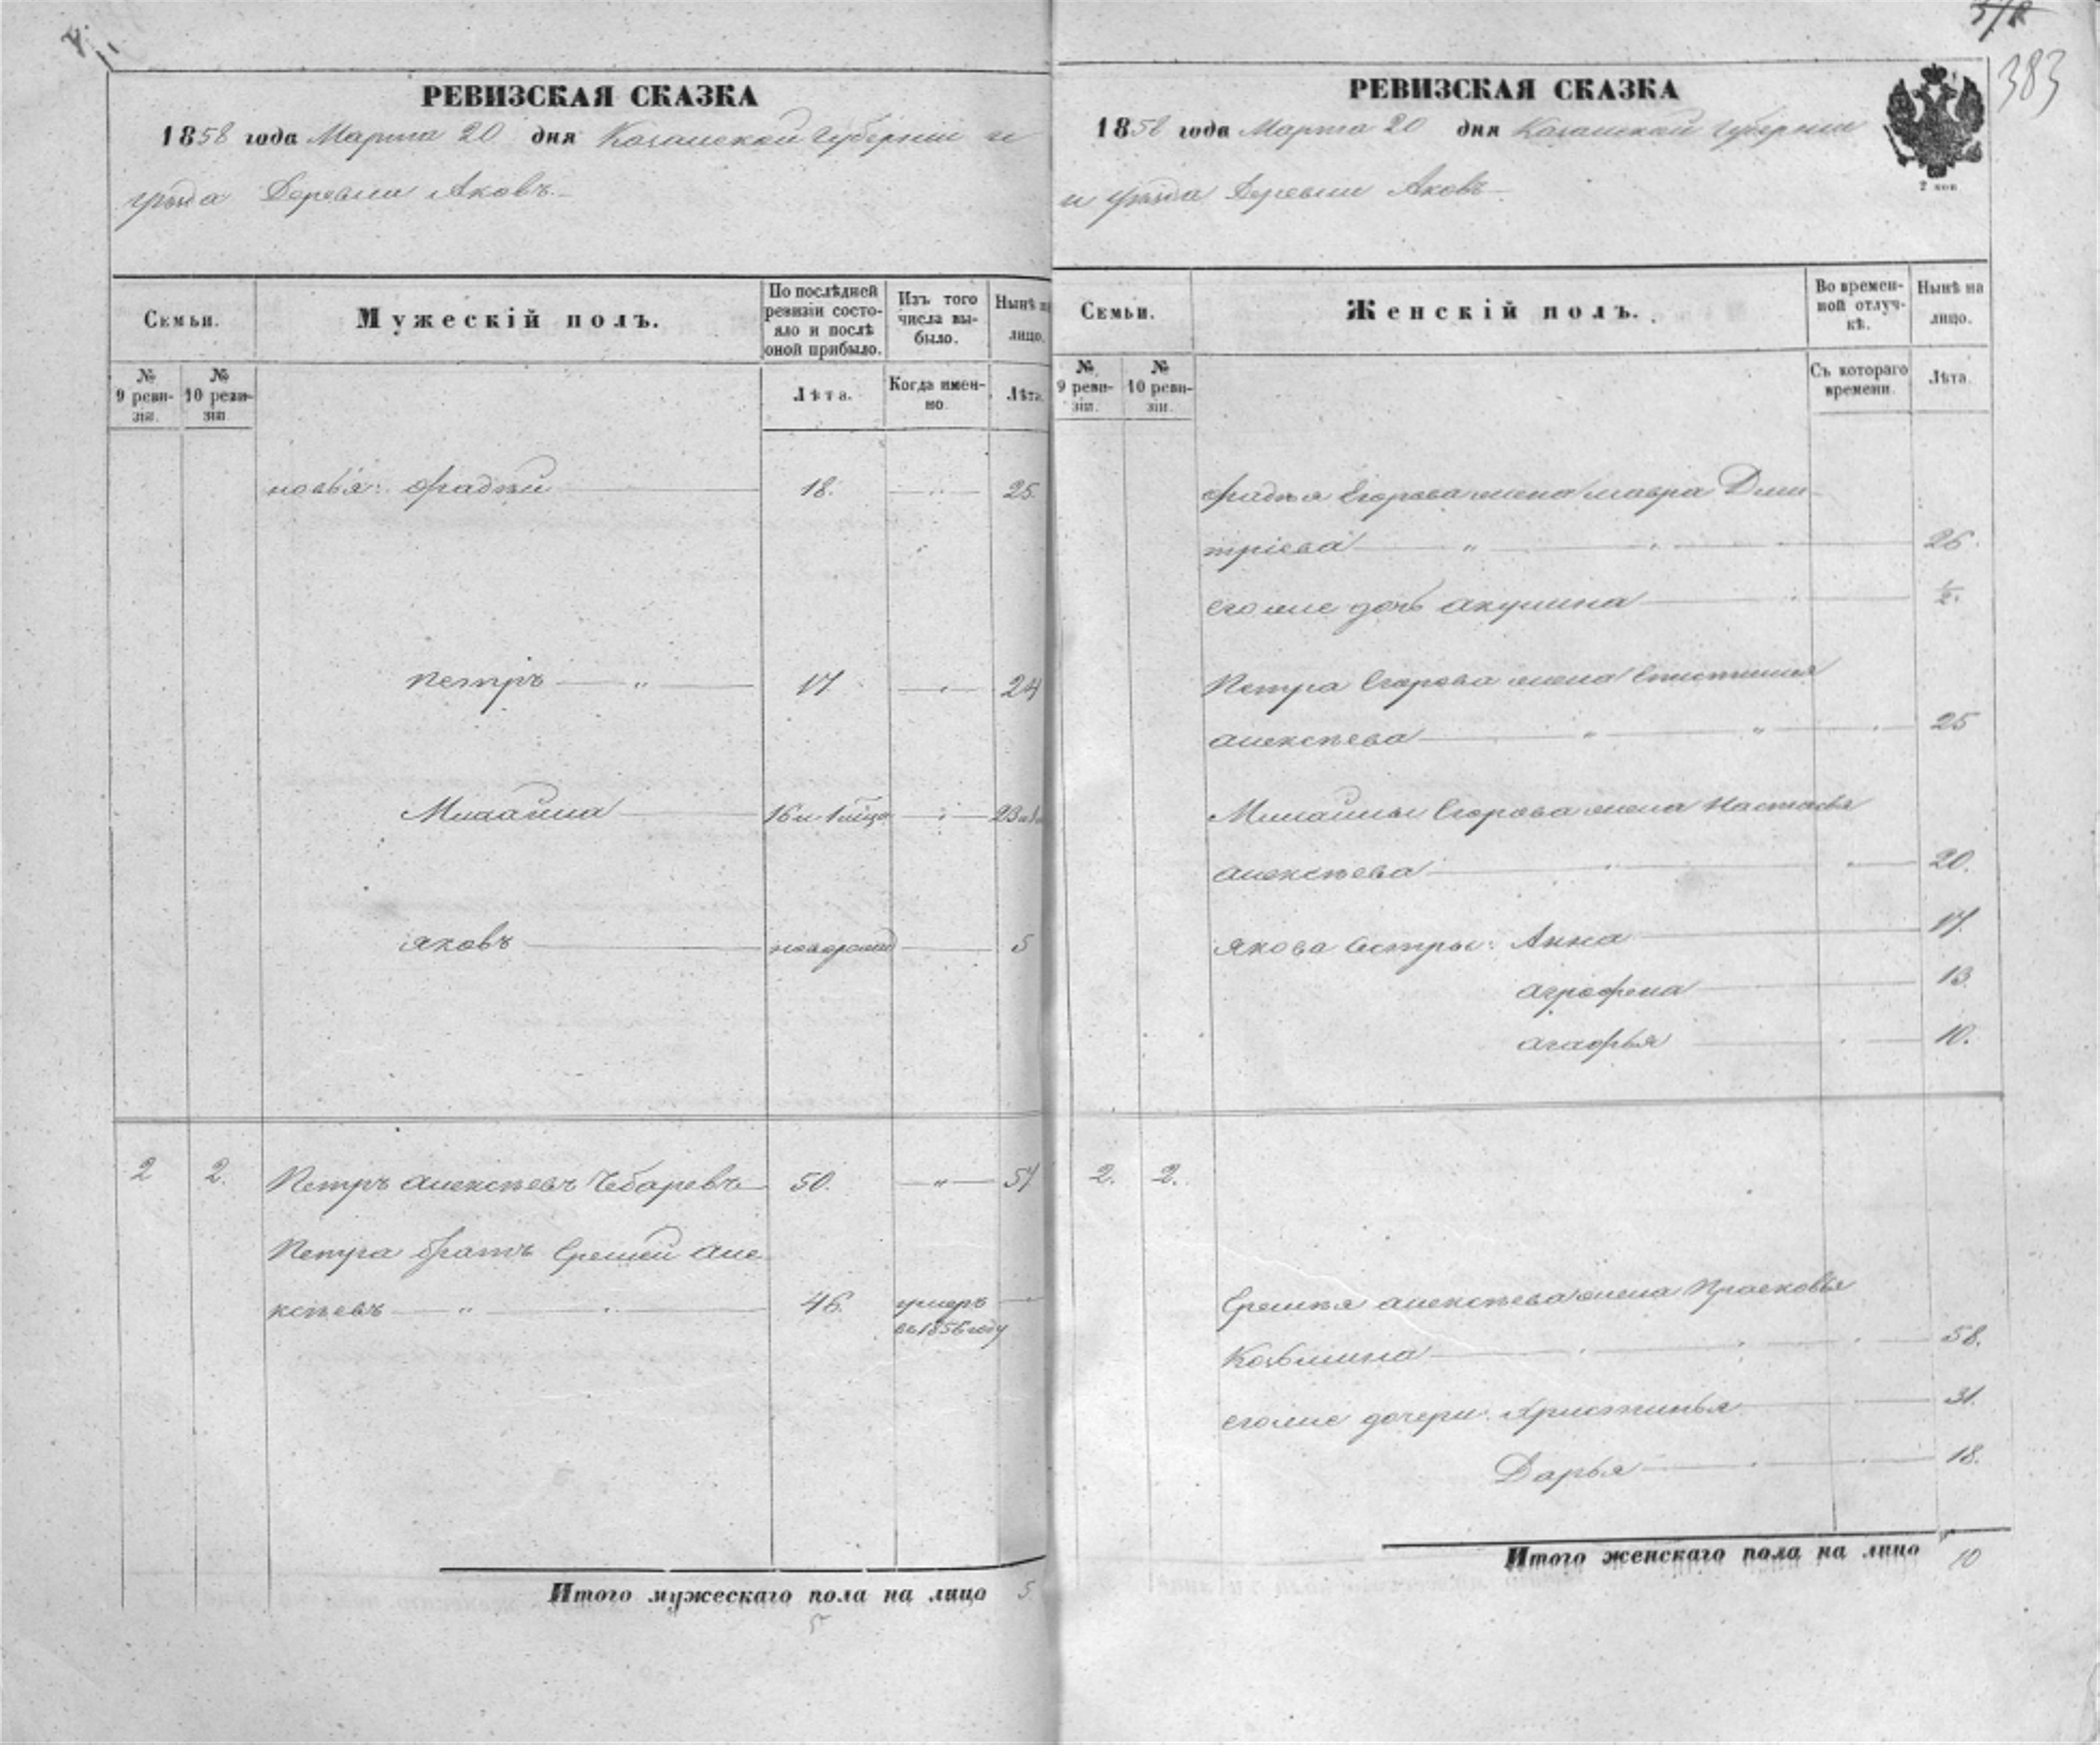 383
РЕВИЗСКАЯ СКАЗКА
1858 года Марта 20 дня Казанской Губерніи и
уѣзда Деревни Аковъ
Семьи.
Мужескій полъ.
По послѣдней ревизіи состояло и послѣ оной прибыло.
Изъ того числа выбыло.
Нынѣ на лицо.
№ 9 ревизіи.
№ 10 ревизіи.
Лѣта.
Когда именно.
Лѣта.
новья: Фадѣй 18. 25.
Петръ 17 24
Михайла 16 и 1 23 и
Яковъ новорожд 5
2 2. Петръ Алексѣевъ Чебаревъ 50. 57
Петра братъ Еремѣй Але
ксѣевъ 46. умеръ
въ 1856 году
Итого мужескаго пола на лицо 5
5
РЕВИЗСКАЯ СКАЗКА
1858 года Марта 20 дня Казанской Губерніи
и уѣзда Деревни Аковъ
2 коп
Семьи.
Женскій полъ.
Во временной отлучкѣ.
Нынѣ на лицо.
№ 9 ревизіи.
№ 10 ревизіи.
Съ котораго времени.
Лѣта.
Фадѣя Егорова жена Мавра Дми
тріева 26
его же дочь Акулина 1/2.
Петра Егорова жена
Алексѣева 25
Михайлы Егорова жена Настасья
Алексѣева 20.
Якова сестры: Анна 17.
Агрофена 13.
Агафья 10.
2. 2.
Еремѣя Алексѣева жена Прасковья
Козьмина 58.
его же дочери: Христинья 31.
Дарья 18.
Итого женскаго пола на лицо 10